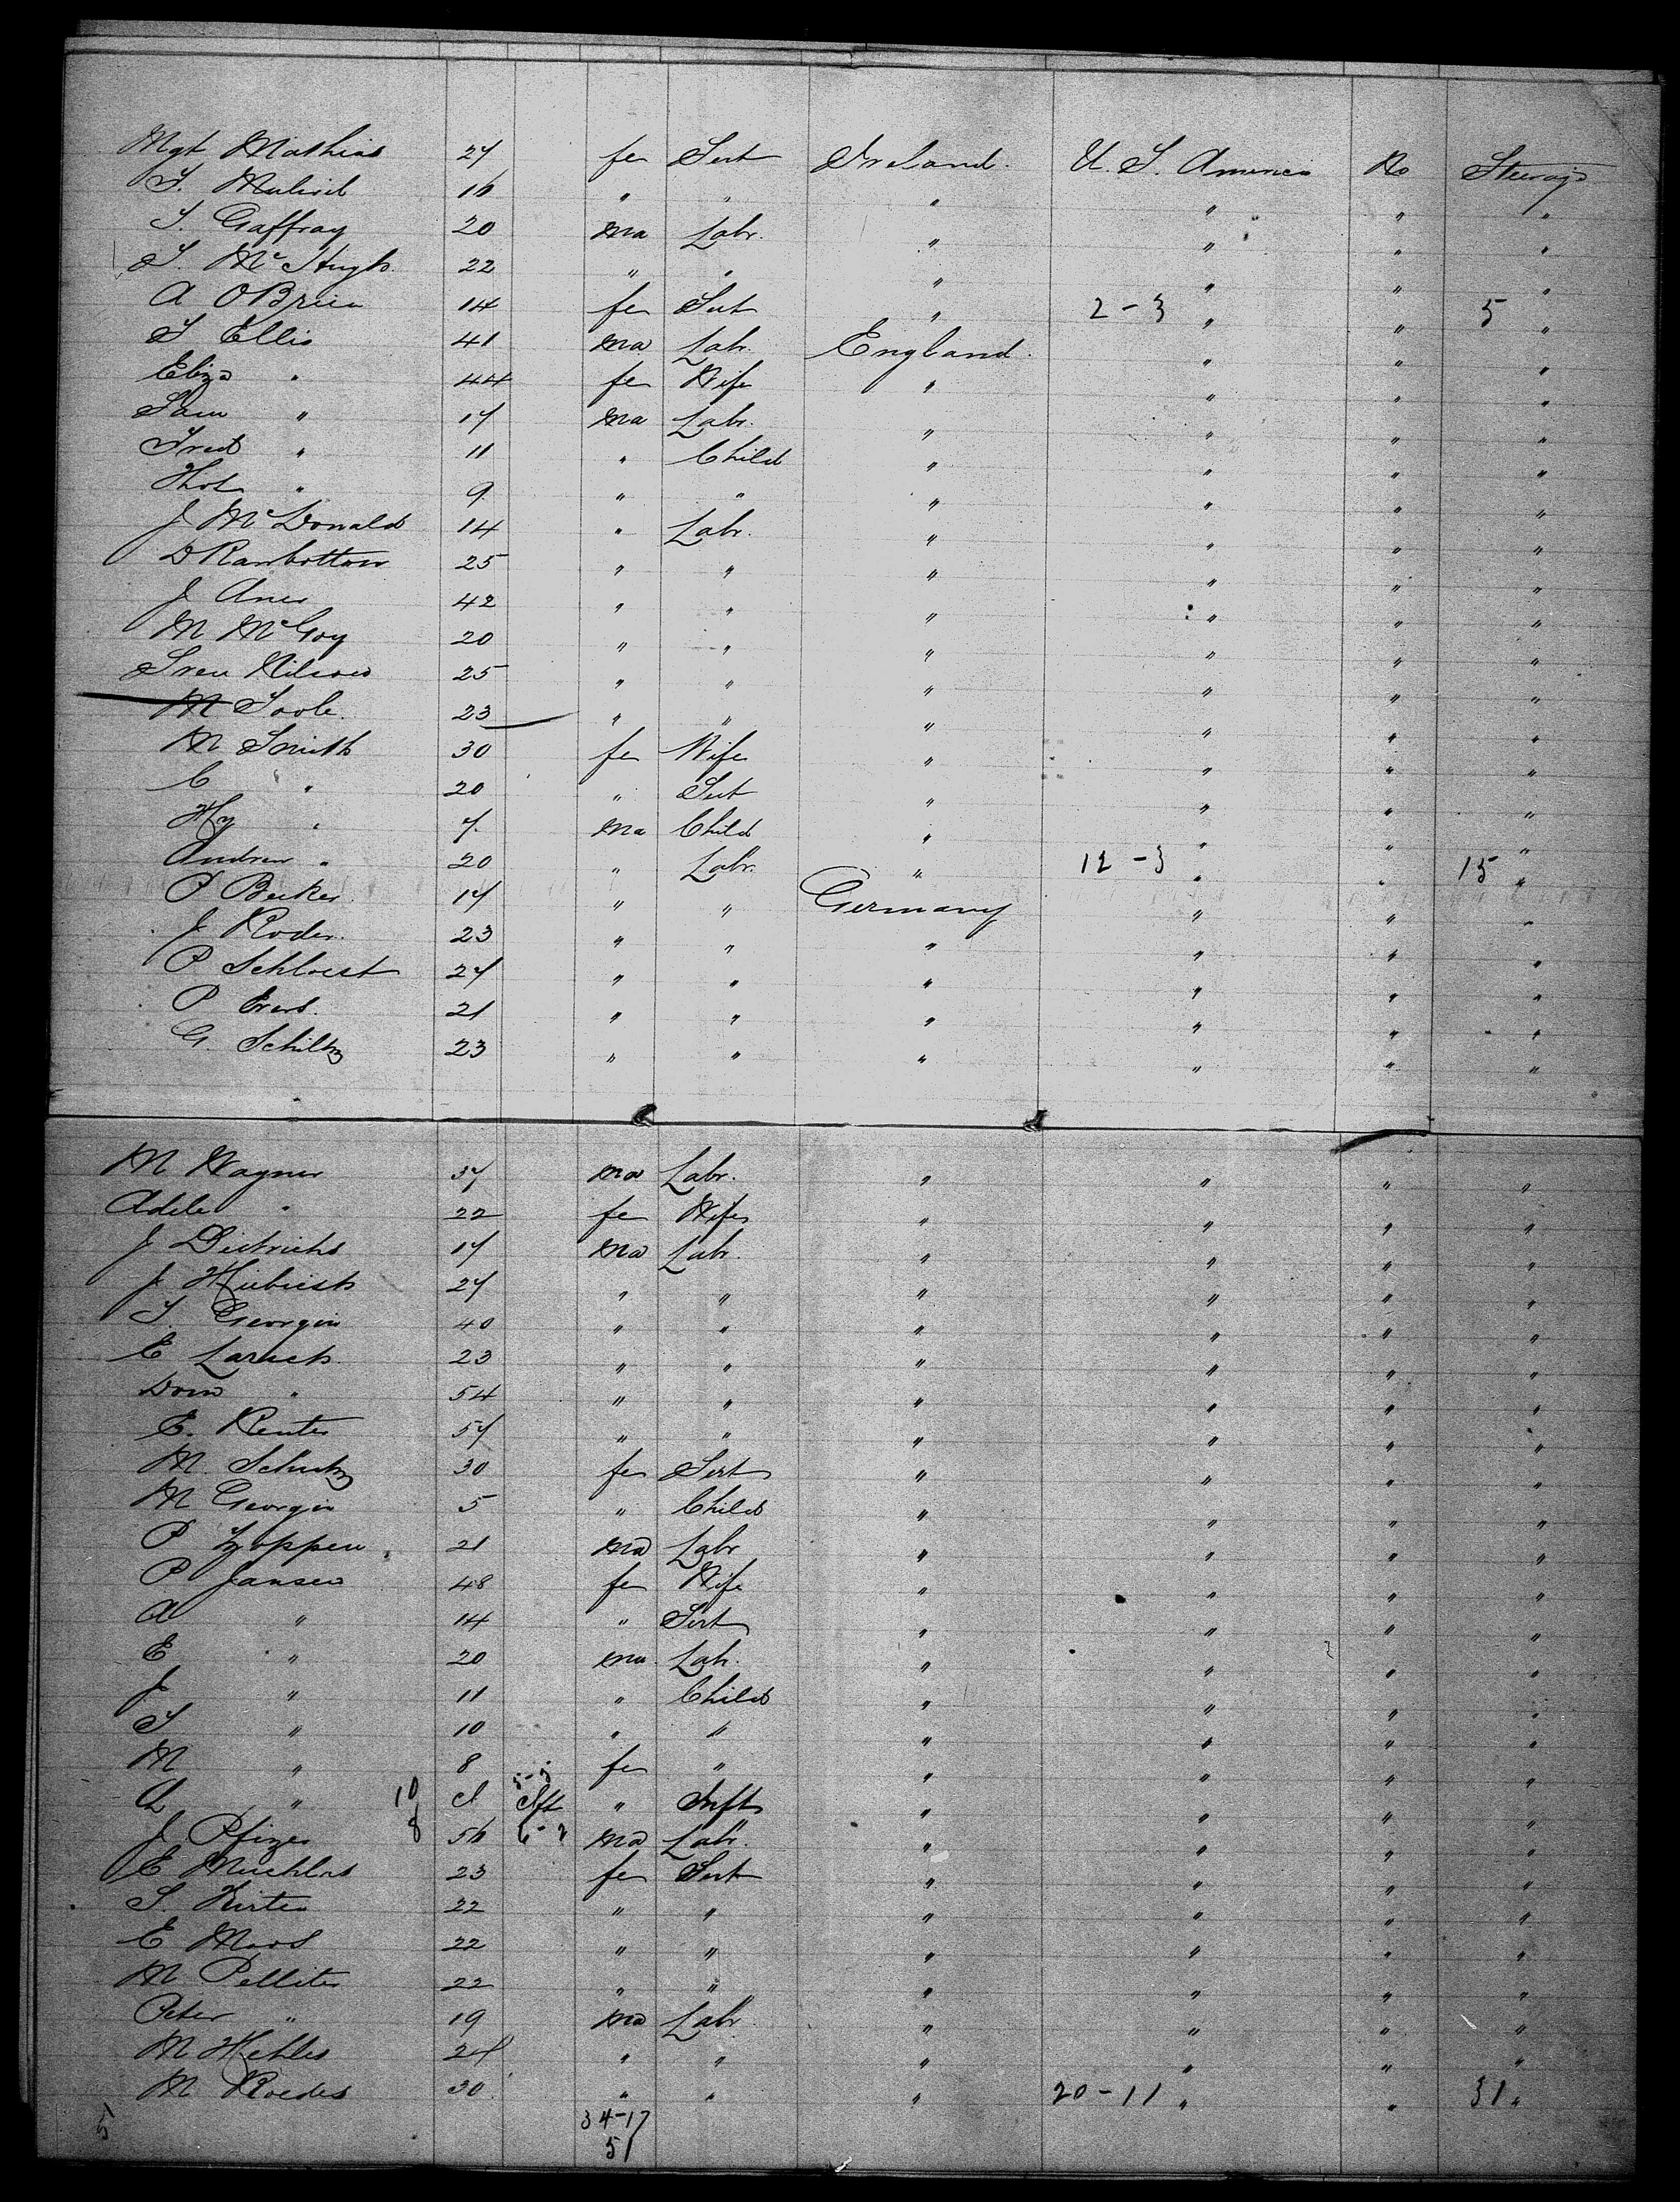 Mgt Mathias 27 fe Sert Ireland. U. S. America No Steerage
T. Mulird 16 " " " " " "
T. Gaffray 20 ma Labr. " " " "
T. McHugh. 22 " " " " " "
A OBrien 14 fe Sert " 2-3 " " 5 "
T Ellis 41 ma Labr. England. " " "
Eliza " 44 fe Wife " " " "
Sam " 17 ma Labr. " " " "
Fred " 11 " Child " " " "
Thos " 9 " " " " " "
J McDonald 14 " Labr. " " " "
D Rambottom 25 " " " " " "
J Aner 42 " " " " " "
M McGoy 20 " " " " " "
Sven Nilsson 25 " " " " " "
M Toole. 23 " " " " " "
M Smith 30 fe Wife " " " "
C " 20 " Sert " " " "
Hy " 7. ma Child " " " "
Andrew " 20 " Labr. " 12-3 " " 15 "
P Becker. 17 " " Germany " " "
J Roder. 23 " " " " " "
P Schloest 27 " " " " " "
P Evers. 21 " " " " " "
G. Schiltz 23 " " " " " "
M Wagner 37 ma Labr. " " " "
Adele " 22 fe Wife " " " "
J Dietrichs 17 ma Labr. " " " "
J 27 " " " " " "
T. Georgin 40 " " " " " "
E Larsch. 23 " " " " " "
Dom " 54 " " " " " "
E. Renter 57 " " " " " "
M. Schutz 30 fe Sert " " " "
M Georgin 5 " Child " " " "
P Zoppen. 21 ma Labr " " " "
P. Jansen 48 fe Wife " " " "
A " 14 " Sert " " " "
E " 20 ma. Labr. " " " "
J " 11 " Child " " " "
T " 10 " " " " " "
M " 8 fe " " " " "
" 10 " Inft " " " "
J Pfizer 8 56 6-2 ma Labr. " " " "
E Muchlas 23 fe Sert " " " "
S. Kirten 22 " " " " " "
E Mars 22 " " " " " "
M. Pelliter 22 " " " " " "
Peter " 19 ma Labr. " " " "
M Hehles 24 " " " " " "
M Roedes 30. " " " 20-11 " " 31 "
51 34-17
51